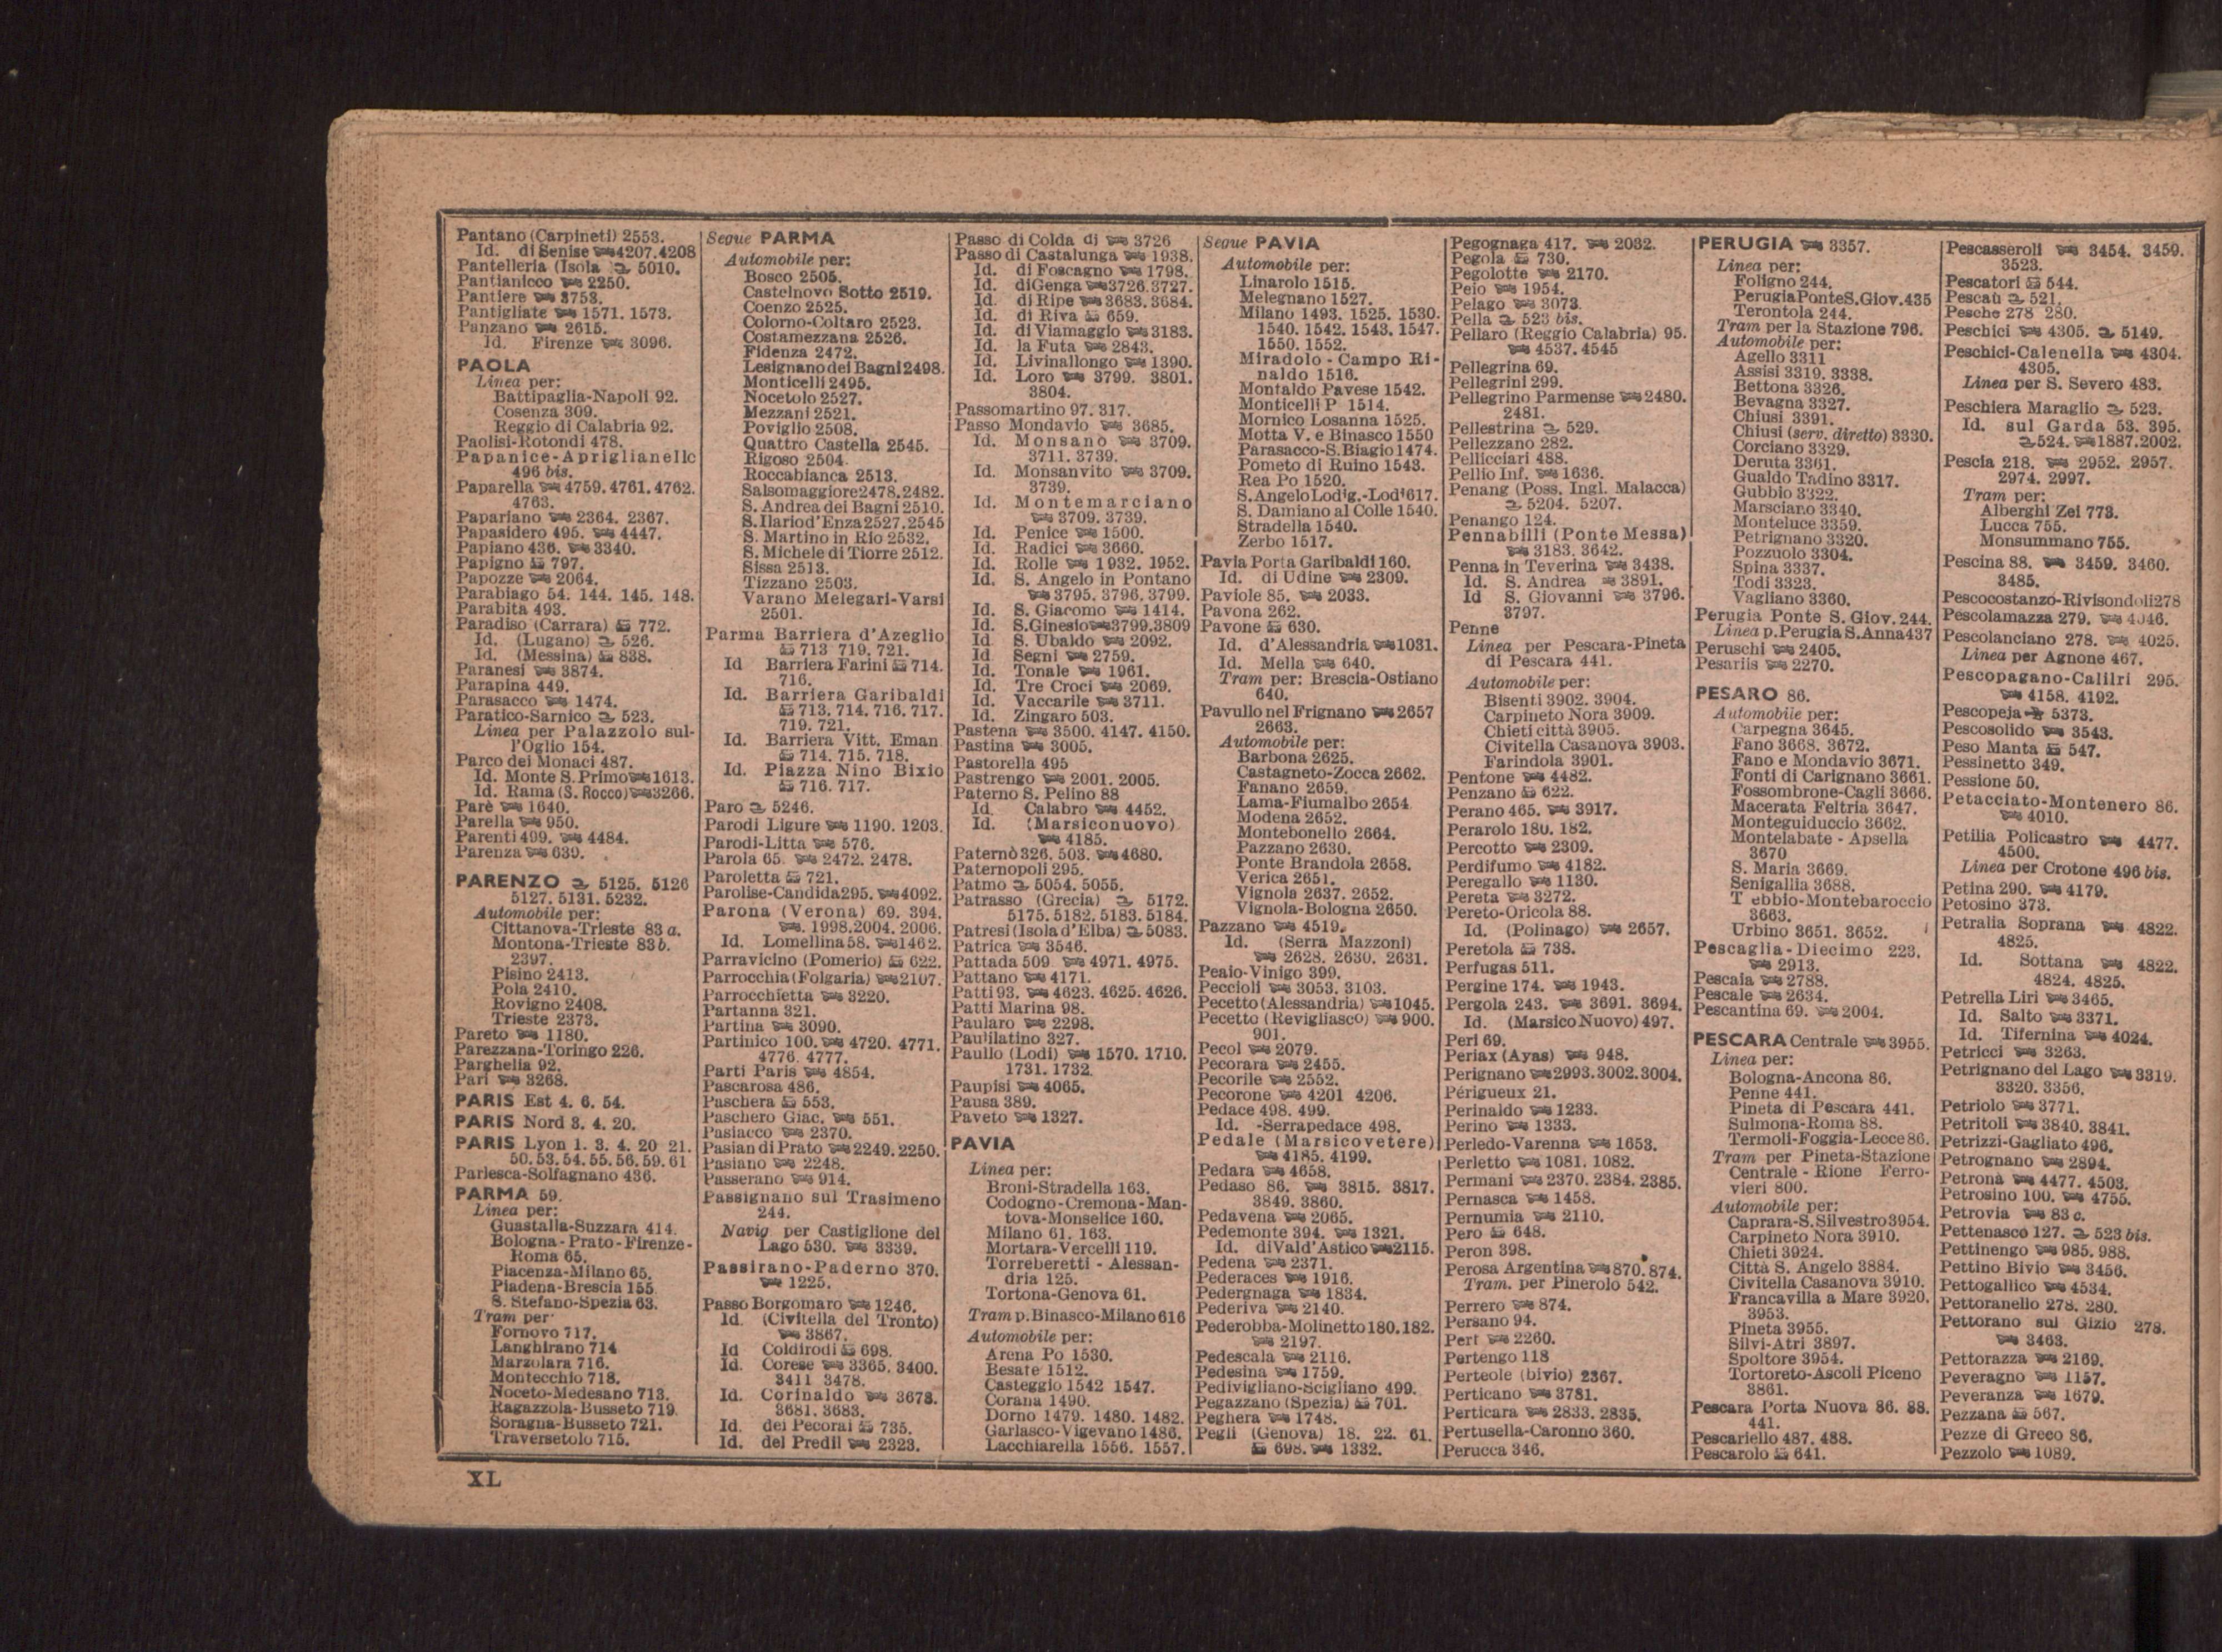 Pantano (Carpineti) 2553.
Id. di Senise 4207.4208
Pantelleria (Isola 5010.
Pantianicco 2250.
Pantiere 3753.
Pantigliate 1571. 1573.
Panzano 2615.
Id. Firenze 3096.
PAOLA
Linea per:
Battipaglia-Napoli 92.
Cosenza 309.
Reggio di Calabria 92.
Paolisi-Rotondi 478.
Papanice-Apriglianello
496 bis.
Paparella 4759. 4761. 4762.
4763.
Papariano 2364. 2367.
Papasidero 495. 4447.
Papiano 436. 3340.
Papigno 797.
Papozze 2064.
Parabiago 54. 144. 145. 148.
Parabita 493.
Paradiso (Carrara) 772.
Id. (Lugano) 526.
Id. (Messina) 838.
Paranesi 3874.
Parapina 449.
Parasacco 1474.
Paratico-Sarnico 523.
Linea per Palazzolo sul-
l'Oglio 154.
Parco dei Monaci 487.
Id. Monte S. Primo 1613.
Id. Rama (S. Rocco) 3266.
Parè 1640.
Parella 950.
Parenti 499. 4484.
Parenza 639.
PARENZO 5125. 5126
5127. 5131. 5232.
Automobile per:
Cittanova-Trieste 83 a.
Montona-Trieste 83 b.
2397.
Pisino 2413.
Pola 2410.
Rovigno 2408.
Trieste 2373.
Pareto 1180.
Parezzana-Toringo 226.
Parghelia 92.
Pari 3268.
PARIS Est 4. 6. 54.
PARIS Nord 3. 4. 20.
PARIS Lyon 1. 3. 4. 20 21.
50. 53. 54. 55. 56. 59. 61
Parlesca-Solfagnano 436.
PARMA 59.
Linea per:
Guastalla-Suzzara 414.
Bologna-Prato-Firenze-
Roma 65.
Piacenza-Milano 65.
Piadena-Brescia 155
S. Stefano-Spezia 63.
Tram per
Fornovo 717.
Langhirano 714
Marzolara 716.
Montecchio 718.
Noceto-Medesano 713.
Ragazzola-Busseto 719.
Soragna-Busseto 721.
Traversetolo 715.
Segue PARMA
Automobile per:
Bosco 2505.
Castelnovo Sotto 2519.
Coenzo 2525.
Colorno-Coltaro 2523.
Costamezzana 2526.
Fidenza 2472.
Lesignano dei Bagni 2498.
Monticelli 2495.
Nocetolo 2527.
Mezzani 2521.
Poviglio 2508.
Quattro Castella 2545.
Rigoso 2504.
Roccabianca 2513.
Salsomaggiore 2478. 2482.
S. Andrea dei Bagni 2510.
S. Ilario d'Enza 2527. 2545
S. Martino in Rio 2532.
S. Michele di Tiorre 2512.
Sissa 2513.
Tizzano 2503.
Varano Melegari-Varsi
2501.
Parma Barriera d'Azeglio
713 719. 721.
Id Barriera Farini 714.
716.
Id. Barriera Garibaldi
713. 714. 716. 717.
719. 721.
Id. Barriera Vitt. Eman
714. 715. 718.
Id. Piazza Nino Bixio
716. 717.
Paro 5246.
Parodi Ligure 1190. 1203.
Parodi-Litta 576.
Parola 65. 2472. 2478.
Paroletta 721.
Parolise-Candida 295. 4092.
Parona (Verona) 69. 394.
1998. 2004. 2006.
Id. Lomellina 58. 1462.
Parravicino (Pomerio) 622.
Parrocchia (Folgaria) 2107.
Parrocchietta 3220.
Partanna 321.
Partina 3090.
Partinico 100. 4720. 4771.
4776. 4777.
Parti Paris 4854.
Pascarosa 486.
Paschera 553.
Paschero Giac. 551.
Pasiacco 2370.
Pasian di Prato 2249. 2250.
Pasiano 2248.
Passerano 914.
Passignano sul Trasimeno
244.
Navig per Castiglione del
Lago 530. 3339.
Passirano-Paderno 370.
1225.
Passo Borgomaro 1246.
Id. (Civitella del Tronto)
3867.
Id Coldirodi 698.
Id. Corese 3365. 3400.
3411 3478.
Id. Corinaldo 3678.
3681. 3683.
Id. dei Pecorai 735.
Id. del Predil 2323.
Passo di Colda di 3726
Passo di Castalunga 1938.
Id. di Foscagno 1798.
Id. di Genga 3726. 3727.
Id. di Ripe 3683. 3684.
Id. di Riva 659.
Id. di Viamaggio 3183.
Id. la Futa 2843.
Id. Livinallongo 1390.
Id. Loro 3799. 3801.
3804.
Passomartino 97. 317.
Passo Mondavio 3685.
Id. Monsano 3709.
3711. 3739.
Id. Monsanvito 3709.
3739.
Id. Montemarciano
3709. 3739.
Id. Penice 1500.
Id. Radici 3660.
Id. Rolle 1932. 1952.
Id. S. Angelo in Pontano
3795. 3796. 3799.
Id. S. Giacomo 1414.
Id. S. Ginesio 3799. 3809
Id S. Ubaldo 2092.
Id Segni 2759.
Id. Tonale 1961.
Id. Tre Croci 2069.
Id. Vaccarile 3711.
Id. Zingaro 503.
Pastena 3500. 4147. 4150.
Pastina 3005.
Pastorella 495
Pastrengo 2001. 2005.
Paterno S. Pelino 88
Id. Calabro 4452.
Id. (Marsiconuovo)
4185.
Paternò 326. 503. 4680.
Paternopoli 295.
Patmo 5054. 5055.
Patrasso (Grecia) 5172.
5175. 5182. 5183. 5184.
Patresi (Isola d'Elba) 5083.
Patrica 3546.
Pattada 509 4971. 4975.
Pattano 4171.
Patti 93. 4623. 4625. 4626.
Patti Marina 98.
Paularo 2298.
Paulilatino 327.
Paullo (Lodi) 1570. 1710.
1731. 1732
Paupisi 4065.
Pausa 389.
Paveto 1327.
PAVIA
Linea per:
Broni-Stradella 163.
Codogno-Cremona-Man-
tova-Monselice 160.
Milano 61. 163.
Mortara-Vercelli 119.
Torreberetti - Alessan-
dria 125.
Tortona-Genova 61.
Tram p. Binasco-Milano 616
Automobile per:
Arena Po 1530.
Besate 1512.
Casteggio 1542 1547.
Corana 1490.
Dorno 1479. 1480. 1482.
Garlasco-Vigevano 1486.
Lacchiarella 1556. 1557.
Segue PAVIA
Automobile per:
Linarolo 1515.
Melegnano 1527.
Milano 1493. 1525. 1530.
1540. 1542. 1543. 1547.
1550. 1552.
Miradolo - Campo Ri-
naldo 1516.
Montaldo Pavese 1542.
Monticelli P 1514.
Mornico Losanna 1525.
Motta V. e Binasco 1550
Parasacco-S. Biagio 1474.
Pometo di Ruino 1543.
Rea Po 1520.
S. Angelo Lodig.-Lodi 617.
S. Damiano al Colle 1540.
Stradella 1540.
Zerbo 1517.
Pavia Porta Garibaldi 160.
Id. di Udine 2309.
Paviole 85. 2033.
Pavona 262.
Pavone 630.
Id. d'Alessandria 1031.
Id. Mella 640.
Tram per: Brescia-Ostiano
640.
Pavullo nel Frignano 2657
2663.
Automobile per:
Barbona 2625.
Castagneto-Zocca 2662.
Fanano 2659.
Lama-Fiumalbo 2654.
Modena 2652.
Montebonello 2664.
Pazzano 2630.
Ponte Brandola 2658.
Verica 2651.
Vignola 2637. 2652.
Vignola-Bologna 2650.
Pazzano 4519.
Id. (Serra Mazzoni)
2628. 2630. 2631.
Peaio-Vinigo 399.
Peccioli 3053. 3103.
Pecetto (Alessandria) 1045.
Pecetto (Revigliasco) 900.
901.
Pecol 2079.
Pecorara 2455.
Pecorile 2552.
Pecorone 4201 4206.
Pedace 498. 499.
Id. -Serrapedace 498.
Pedale (Marsicovetere)
4185. 4199.
Pedara 4658.
Pedaso 86. 3815. 3817.
3849. 3860.
Pedavena 2065.
Pedemonte 394. 1321.
Id. di Vald'Astico 2115.
Pedena 2371.
Pederaces 1916.
Pedergnaga 1834.
Pederiva 2140.
Pederobba-Molinetto 180. 182.
2197.
Pedescala 2116.
Pedesina 1759.
Pedivigliano-Scigliano 499.
Pegazzano (Spezia) 701.
Peghera 1748.
Pegli (Genova) 18. 22. 61.
698. 1332.
Pegognaga 417. 2032.
Pegola 730.
Pegolotte 2170.
Peio 1954.
Pelago 3073.
Pella 523 bis.
Pellaro (Reggio Calabria) 95.
4537. 4545
Pellegrina 69.
Pellegrini 299.
Pellegrino Parmense 2480.
2481.
Pellestrina 529.
Pellezzano 282.
Pellicciari 488.
Pellio Inf. 1636.
Penang (Poss. Ingl. Malacca)
5204. 5207.
Penango 124.
Pennabilli (Ponte Messa)
3183. 3642.
Penna in Teverina 3438.
Id. S. Andrea 3891.
Id S. Giovanni 3796.
3797.
Penne
Linea per Pescara-Pineta
di Pescara 441.
Automobile per:
Bisenti 3902. 3904.
Carpineto Nora 3909.
Chieti città 3905.
Civitella Casanova 3903.
Farindola 3901.
Pentone 4482.
Penzano 622.
Perano 465. 3917.
Perarolo 180. 182.
Percotto 2309.
Perdifumo 4182.
Peregallo 1130.
Pereta 3272.
Pereto-Oricola 88.
Id. (Polinago) 2657.
Peretola 738.
Perfugas 511.
Pergine 174. 1943.
Pergola 243. 3691. 3694.
Id. (Marsico Nuovo) 497.
Peri 69.
Periax (Ayas) 948.
Perignano 2993. 3002. 3004.
Périgueux 21.
Perinaldo 1233.
Perino 1333.
Perledo-Varenna 1653.
Perletto 1081. 1082.
Permani 2370. 2384. 2385.
Pernasca 1458.
Pernumia 2110.
Pero 648.
Peron 398.
Perosa Argentina 870. 874.
Tram. per Pinerolo 542.
Perrero 874.
Persano 94.
Pert 2260.
Pertengo 118
Perteole (bivio) 2367.
Perticano 3781.
Perticara 2833. 2835.
Pertusella-Caronno 360.
Perucca 346.
PERUGIA 3357.
Linea per:
Foligno 244.
Perugia Ponte S. Giov. 435
Terontola 244.
Tram per la Stazione 796.
Automobile per:
Agello 3311
Assisi 3319. 3338.
Bettona 3326.
Bevagna 3327.
Chiusi 3391.
Chiusi (serv. diretto) 3330.
Corciano 3329.
Deruta 3361.
Gualdo Tadino 3317.
Gubbio 3322.
Marsciano 3340.
Monteluce 3359.
Petrignano 3320.
Pozzuolo 3304.
Spina 3337.
Todi 3323.
Vagliano 3360.
Perugia Ponte S. Giov. 244.
Linea p. Perugia S. Anna 437
Peruschi 2405.
Pesariis 2270.
PESARO 86.
Automobile per:
Carpegna 3645.
Fano 3668. 3672.
Fano e Mondavio 3671.
Fonti di Carignano 3661.
Fossombrone-Cagli 3666.
Macerata Feltria 3647.
Monteguiduccio 3662.
Montelabate - Apsella
3670
S. Maria 3669.
Senigallia 3688.
T ebbio-Montebaroccio
3663.
Urbino 3651. 3652.
Pescaglia-Diecimo 223.
2913.
Pescaia 2788.
Pescale 2634.
Pescantina 69. 2004.
PESCARA Centrale 3955.
Linea per:
Bologna-Ancona 86.
Penne 441.
Pineta di Pescara 441.
Sulmona-Roma 88.
Termoli-Foggia-Lecce 86.
Tram per Pineta-Stazione
Centrale - Rione Ferro-
vieri 800.
Automobile per:
Caprara-S. Silvestro 3954.
Carpineto Nora 3910.
Chieti 3924.
Città S. Angelo 3884.
Civitella Casanova 3910.
Francavilla a Mare 3920.
3953.
Pineta 3955.
Silvi-Atri 3897.
Spoltore 3954.
Tortoreto-Ascoli Piceno
3861.
Pescara Porta Nuova 86. 88.
441.
Pescariello 487. 488.
Pescarolo 641.
Pescasseroli 3454. 3459.
3523.
Pescatori 544.
Pescaù 521.
Pesche 278 280.
Peschici 4305. 5149.
Peschici-Calenella 4304.
4305.
Linea per S. Severo 483.
Peschiera Maraglio 523.
Id. sul Garda 53. 395.
524. 1887. 2002.
Pescia 218. 2952. 2957.
2974. 2997.
Tram per:
Alberghi Zei 773.
Lucca 755.
Monsummano 755.
Pescina 88. 3459. 3460.
3485.
Pescocostanzo-Rivisondoli 278
Pescolamazza 279. 4046.
Pescolanciano 278. 4025.
Linea per Agnone 467.
Pescopagano-Calilri 295.
4158. 4192.
Pescopeja 5373.
Pescosolido 3543.
Peso Manta 547.
Pessinetto 349.
Pessione 50.
Petacciato-Montenero 86.
4010.
Petilia Policastro 4477.
4500.
Linea per Crotone 496 bis.
Petina 290. 4179.
Petosino 373.
Petralia Soprana 4822.
4825.
Id. Sottana 4822.
4824. 4825.
Petrella Liri 3465.
Id. Salto 3371.
Id. Tifernina 4024.
Petricci 3263.
Petrignano del Lago 3319.
3320. 3356.
Petriolo 3771.
Petritoli 3840. 3841.
Petrizzi-Gagliato 496.
Petrognano 2894.
Petronà 4477. 4503.
Petrosino 100. 4755.
Petrovia 83 c.
Pettenasco 127. 523 bis.
Pettinengo 985. 988.
Pettino Bivio 3456.
Pettogallico 4534.
Pettoranello 278. 280.
Pettorano sul Gizio 278.
3463.
Pettorazza 2169.
Peveragno 1157.
Peveranza 1679.
Pezzana 567.
Pezze di Greco 86.
Pezzolo 1089.
XL